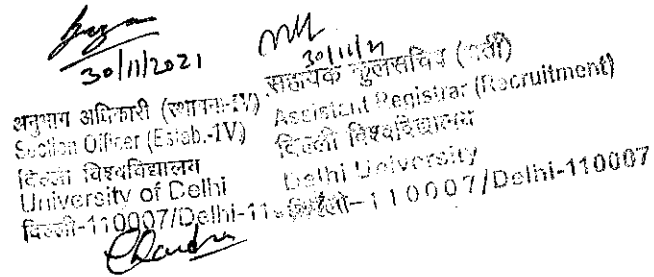 30/11/2021
30/11/21
अनुभाग अधिकारी (स्थापना-IV)
Section Officer (Estab.-IV)
दिल्ली विश्वविद्यालय
University of Delhi
दिल्ली-110007/Delhi-11
सहायक कुलसचिव (भर्ती)
Assistant Registrar (Recruitment)
दिल्ली विश्वविद्यालय
Delhi University
दिल्ली-110007/Delhi-110007
Chandra